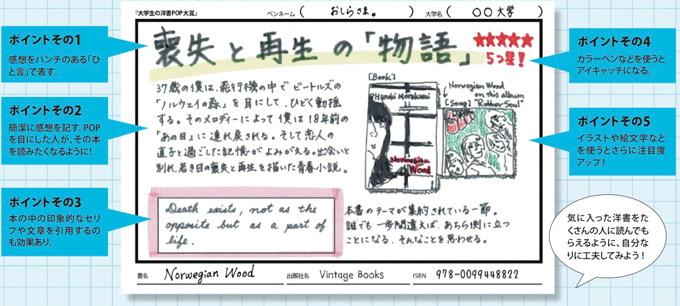 『大学生の洋書POP大賞』 ペンネーム( おしらさま。 ) 大学名( ○○大学 )
ポイントその1
感想をパンチのある「ひ
と言」で表す.
喪失と再生の「物語」
★★★★★
5つ星!
ポイントその4
カラーペンなどを使うと
アイキャッチになる.
ポイントその2
簡潔に感想を記す. POP
を目にした人が、その本
を読みたくなるように!
37歳の僕は、飛行機の中でビートルズの
「ノルウェイの森」を目にして、ひどく動揺
する。そのメロディーによって僕は18年前の
「あの日」に連れ戻される。そして恋人の
直子と過ごした記憶がよみがえる。出会いと
別れ、若き日の喪失と再生を描いた青春小説。
[Book]
Haruki Murakami
Norwegian
Wood
Norwegian Wood
on this album
[Song] "Rubber Soul"
ポイントその5
イラストや絵文字など
を使うとさらに注目度
アップ!
ポイントその3
本の中の印象的なセリ
フや文章を引用するの
も効果あり.
Death exists, not as the
opposite but as a part of
life.
本書のテーマが集約されている一節。
誰でも一歩間違えば、あちら側に立つ
ことになる、そんなことを思わせる。
気に入った洋書をた
くさんの人に読んでも
らえるように、自分な
りに工夫してみよう!
書名 Norwegian Wood 出版社名 Vintage Books ISBN 978-0099448822